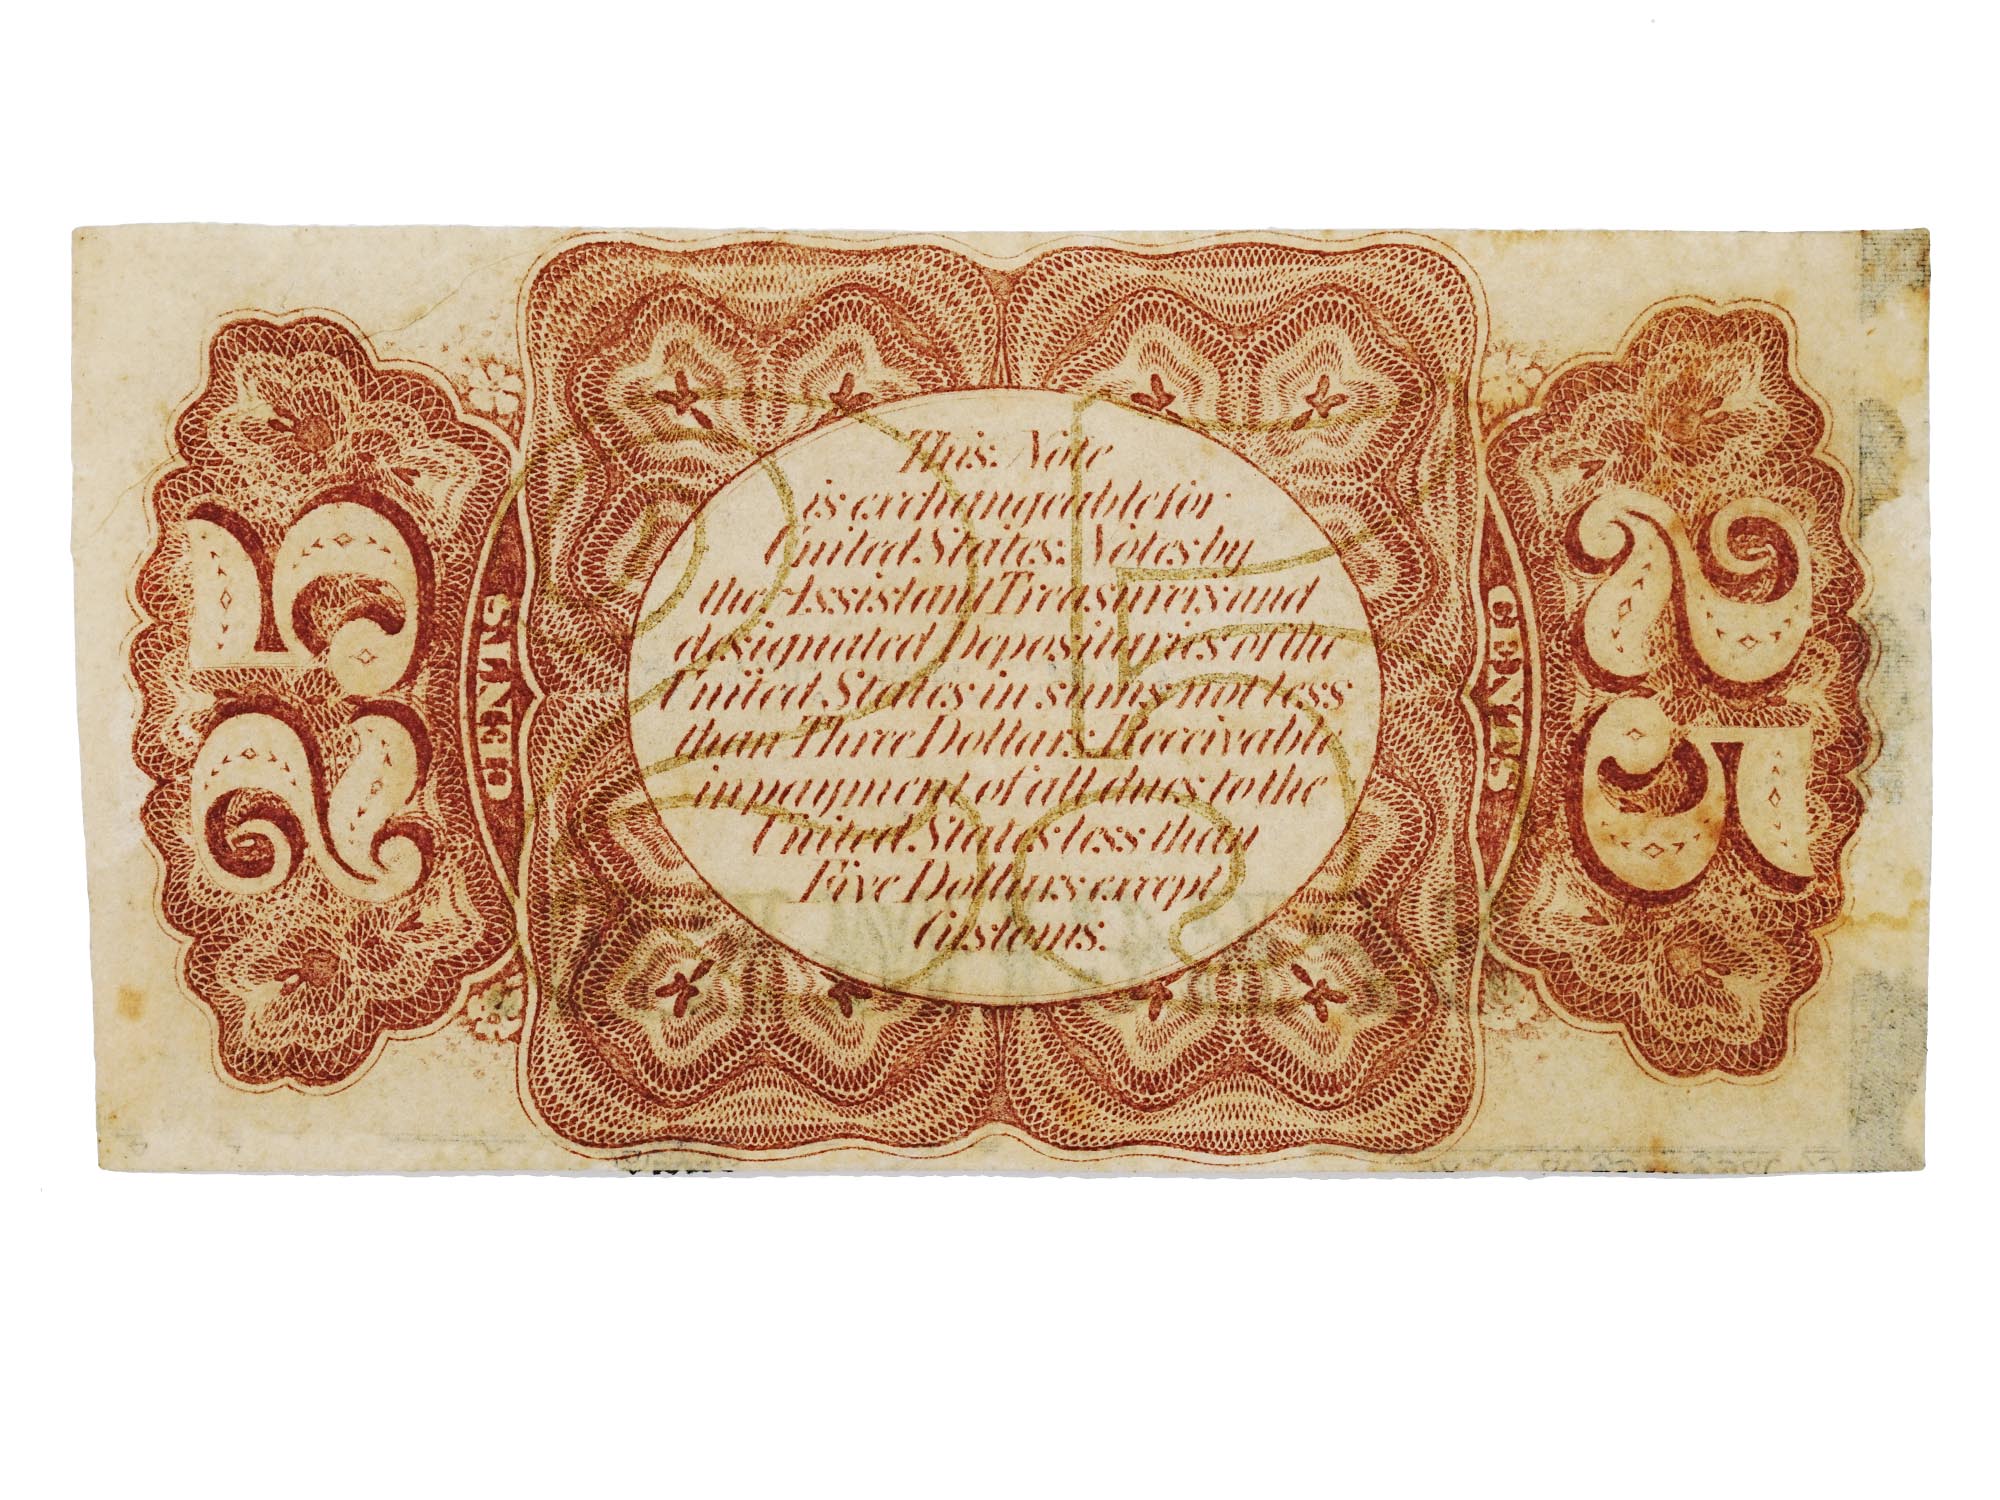 This Note
is exchangeable for
United States Notes by
the Assistant Treasurers and
designated Depositaries of the
United States in sums not less
than Three Dollars. Receivable
in payment of all dues to the
United States less than
Five Dollars except
Customs.
25
CENTS
25
CENTS
25